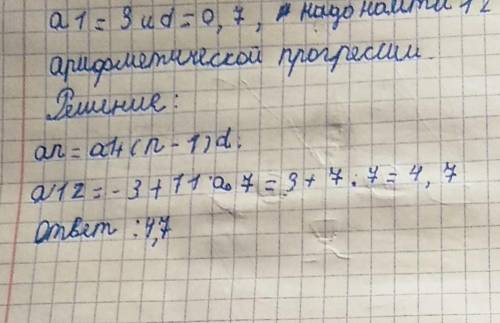 а1 = 3 и d = 0,7, надо найти 12
арифметической прогрессии.
Решение:
an = a1+(n-1)d;
a12 = -3 + 11·0,7 = 3 + 7,7 = 4,7
Ответ: 4,7